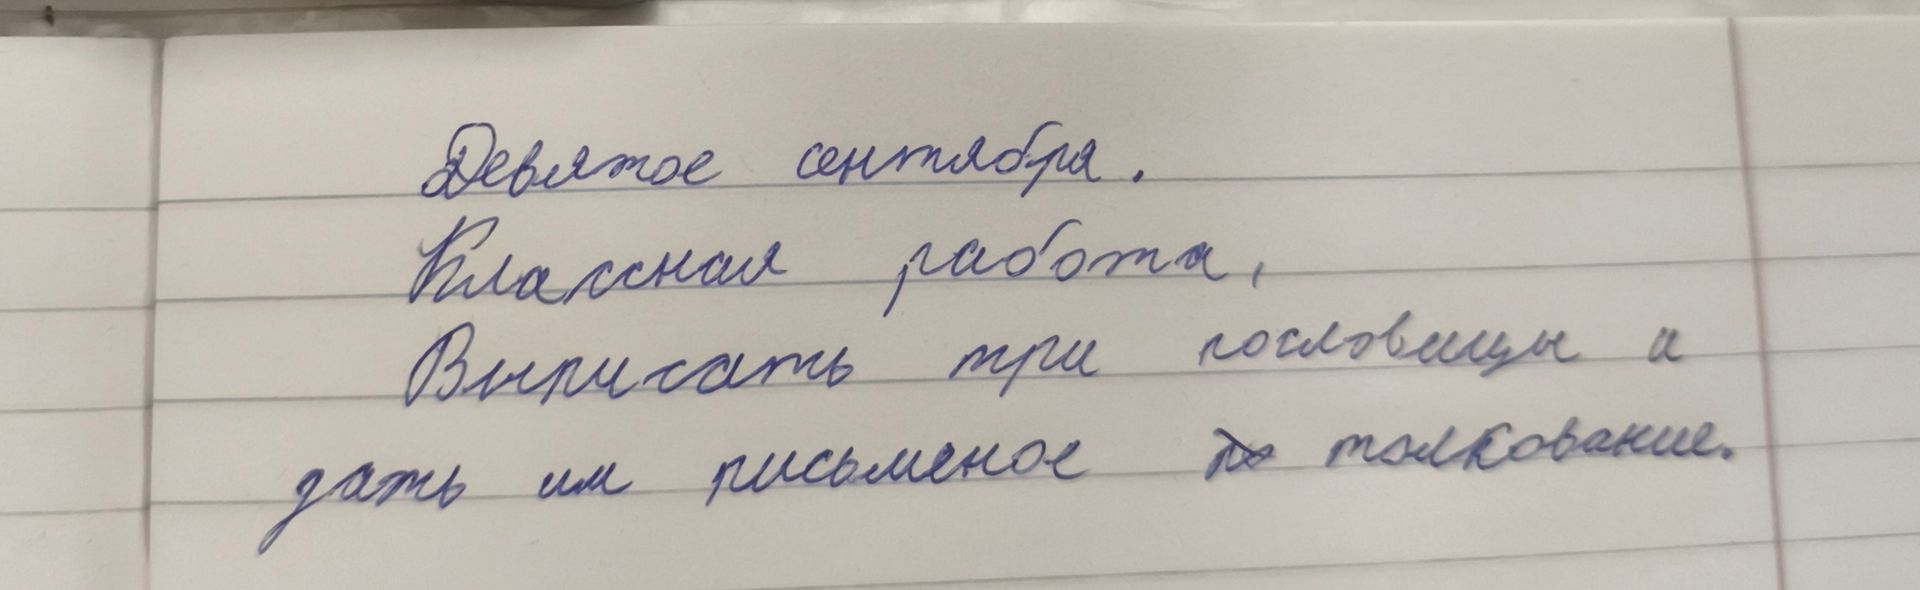 Девятое сентября.
Классная работа,
Выписать три пословицы и
дать им письменое толкование.